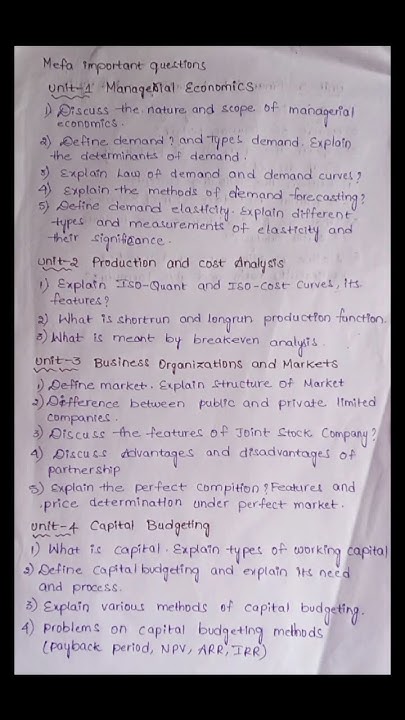 Mefa important questions
Unit-1 Managerial Economics
1) Discuss the nature and scope of managerial
economics.
2) Define demand? and Types demand. Explain
the determinants of demand.
3) Explain Law of demand and demand curves?
4) Explain the methods of demand forecasting?
5) Define demand elasticity. Explain different
types and measurements of elasticity and
their significance.
Unit-2 Production and cost Analysis
1) Explain Iso-Quant and Iso-cost curves, its
features?
2) What is shortrun and longrun production function.
3) What is meant by breakeven analysis.
Unit-3 Business Organizations and Markets
1) Define market. Explain structure of Market
2) Difference between public and private limited
companies.
3) Discuss the features of Joint Stock Company?
4) Discuss Advantages and disadvantages of
partnership
5) Explain the perfect compition? Features and
price determination under perfect market.
Unit-4 Capital Budgeting
1) What is capital. Explain types of working capital
2) Define capital budgeting and explain its need
and process.
3) Explain various methods of capital budgeting.
4) problems on capital budgeting methods
(payback period, NPV, ARR, IRR)